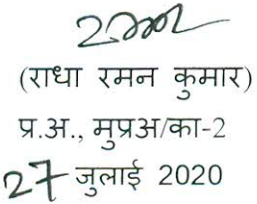 (राधा रमन कुमार)
प्र.अ., मुप्रअ/का-2
27 जुलाई 2020